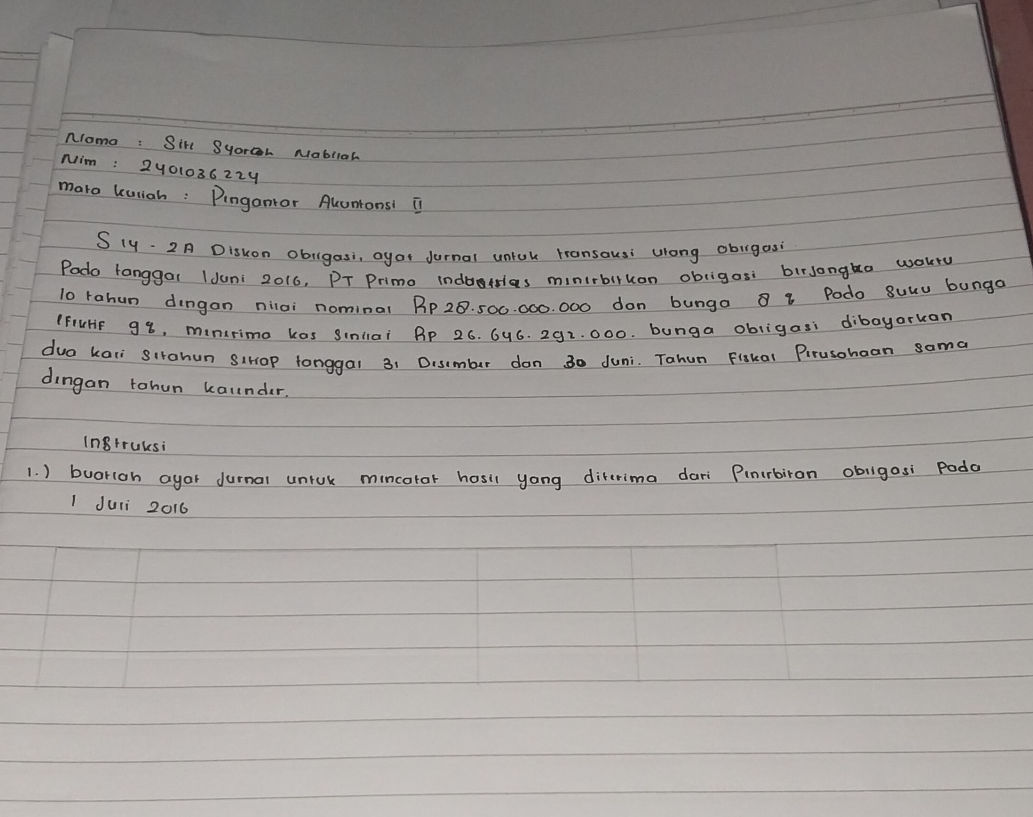 Nama : Siti Syarah Nabilah
Nim : 2401036224
mata kuliah : Pengantar Akuntansi II
S 14 - 2A Diskon obligasi, ayat jurnal untuk transaksi utang obligasi
Pada tanggal 1 Juni 2016, PT Prima Industries menerbitkan obligasi berjangka waktu
10 tahun dengan nilai nominal Rp 28.500.000.000 dan bunga 8 % Pada suku bunga
efektif 9%, menerima kas senilai Rp 26.646.292.000. bunga obligasi dibayarkan
dua kali setahun setiap tanggal 31 Desember dan 30 Juni. Tahun Fiskal Perusahaan sama
dengan tahun kalender.
Instruksi
1.) buatlah ayat jurnal untuk mencatat hasil yang diterima dari Penerbitan obligasi Pada
1 Juli 2016